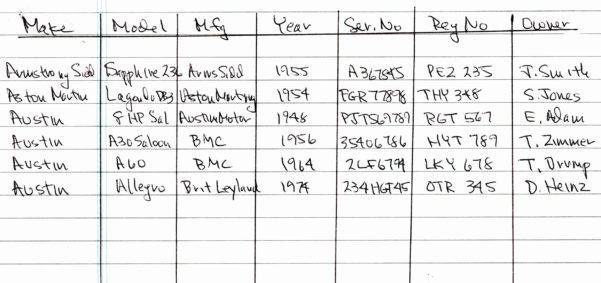 Make Model Mfg Year Ser.No Reg No Owner
Armstrong Sidd Sapphire 236 ArmsSidd 1955 A367845 PEZ 235 J.Smith
Aston Martin Lagonda DB3 1954 FGR77898 THY 348 S.Jones
Austin 8 HP Sal AustinMotor 1948 PJTS69789 RGT 567 E. Adam
Austin A30 Saloon BMC 1956 35406786 HYT 789 T. Zimmer
Austin A60 BMC 1964 2LF6794 LKY 678 T. Drump
Austin Allegro Brit Leyland 1974 234HGT45 OTR 345 D. Heinz